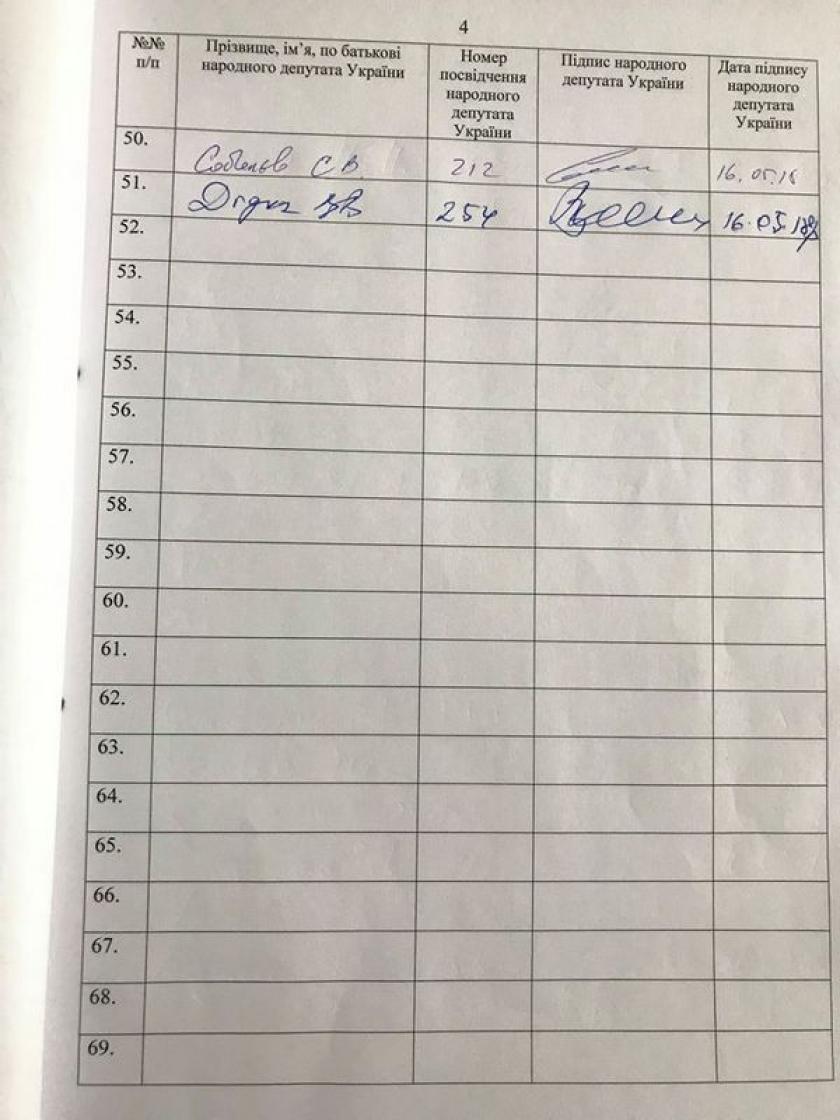 4
№№ п/п Прізвище, ім’я, по батькові народного депутата України Номер посвідчення народного депутата України Підпис народного депутата України Дата підпису народного депутата України
50. Соболєв С В 212 16.05.18
51. 254 16.05.18р
52.
53.
54.
55.
56.
57.
58.
59.
60.
61.
62.
63.
64.
65.
66.
67.
68.
69.